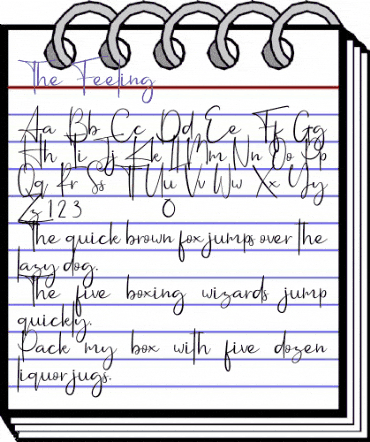 The Feeling
Aa Bb Cc Dd Ee Ff Gg
Hh Ii Jj Kk Ll Mm Nn Oo Pp
Qq Rr Ss Tt Uu Vv Ww Xx Yy
Zz 123 0
The quick brown fox jumps over the
lazy dog.
The five boxing wizards jump
quickly.
Pack my box with five dozen
liquor jugs.